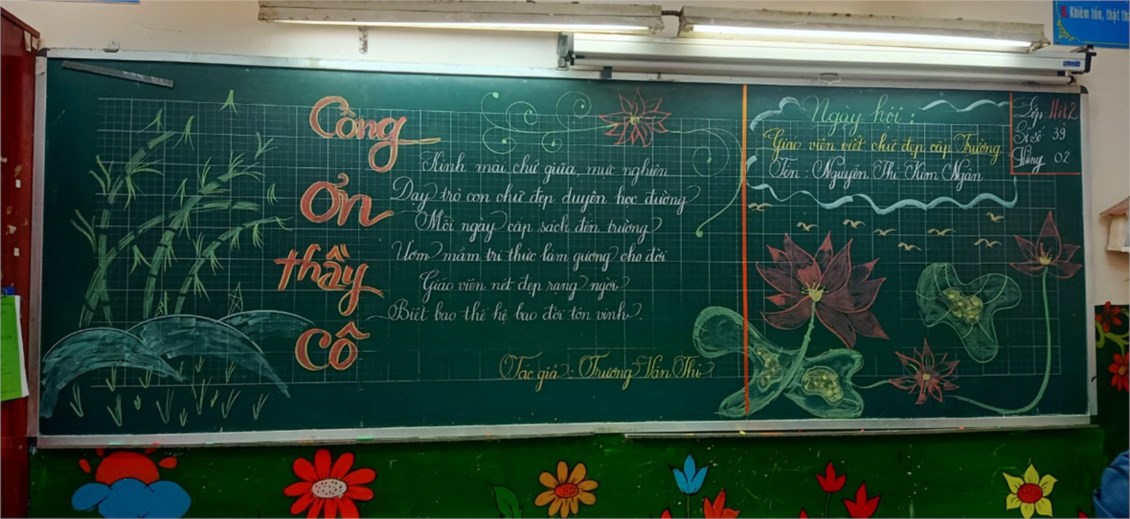 Khiêm tốn, thật th
Công
Ơn
thầy
cô
Kính mài chữ giữa, mực nghiên
Dạy trò con chữ đẹp duyên học đường
Mỗi ngày cắp sách đến trường
Ươm mầm tri thức làm gương cho đời
Giáo viên nét đẹp rạng ngời
Biết bao thế hệ bao đời tôn vinh.
Tác giả : Trương Văn Thi
Ngày hội :
Giáo viên viết chữ đẹp cấp Trường
Tên : Nguyễn Thị Kim Ngân
Lớp:
Sĩ số 39
Vắng 02